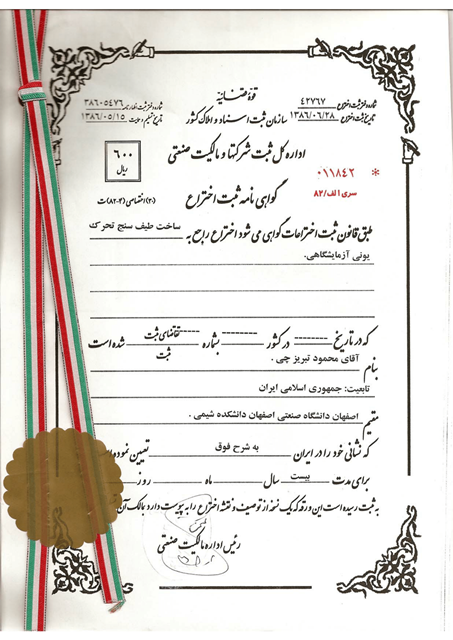 قوهٔ قضائیه
شماره دفتر ثبت اختراع ۴۲۷۶۷
شماره دفتر ثبت اظهارنامه ۳۸۶۰۵۴۷۶
تاریخ ثبت اختراع ۱۳۸۶/۰۶/۲۸
سازمان ثبت اسناد و املاک کشور
۱۳۸۶/۰۵/۱۵
اداره کل ثبت شرکتها و مالکیت صنعتی
۶۰۰
ریال
* ۰۱۱۸۴۲
سری الف/۸۲
گواهی نامه ثبت اختراع
طبق قانون ثبت اختراعات گواهی می شود اختراع راجع به ساخت طیف سنج تحرک
یونی آزمایشگاهی.
که در تاریخ -------- در کشور -------- بشماره ------- تقاضای ثبت شده است
ثبت
بنام آقای محمود تبریز چی.
تابعیت: جمهوری اسلامی ایران
مقیم اصفهان دانشگاه صنعتی اصفهان دانشکده شیمی .
که نشانی خود را در ایران به شرح فوق تعیین نموده
برای مدت بیست سال ماه روز
به ثبت رسیده است این ورقه که یک نسخه از توصیف و نقشه اختراع را به پیوست دارد بمالک آن
رئیس اداره مالکیت صنعتی